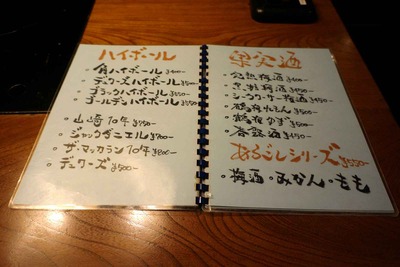 ハイボール
角ハイボール ¥400-
デュワーズハイボール ¥450-
ブラックハイボール ¥500-
ゴールデンハイボール ¥550-
山崎10年 ¥750-
ジャックダニエル ¥700-
ザ・マッカラン10年 ¥800-
デュワーズ ¥500-
果実酒
梅酒 ¥450-
シークワーサー梅酒 ¥450-
鶴梅 ゆず ¥500-
杏露酒 ¥450-
あらごしシリーズ ¥550-
梅酒・みかん・もも